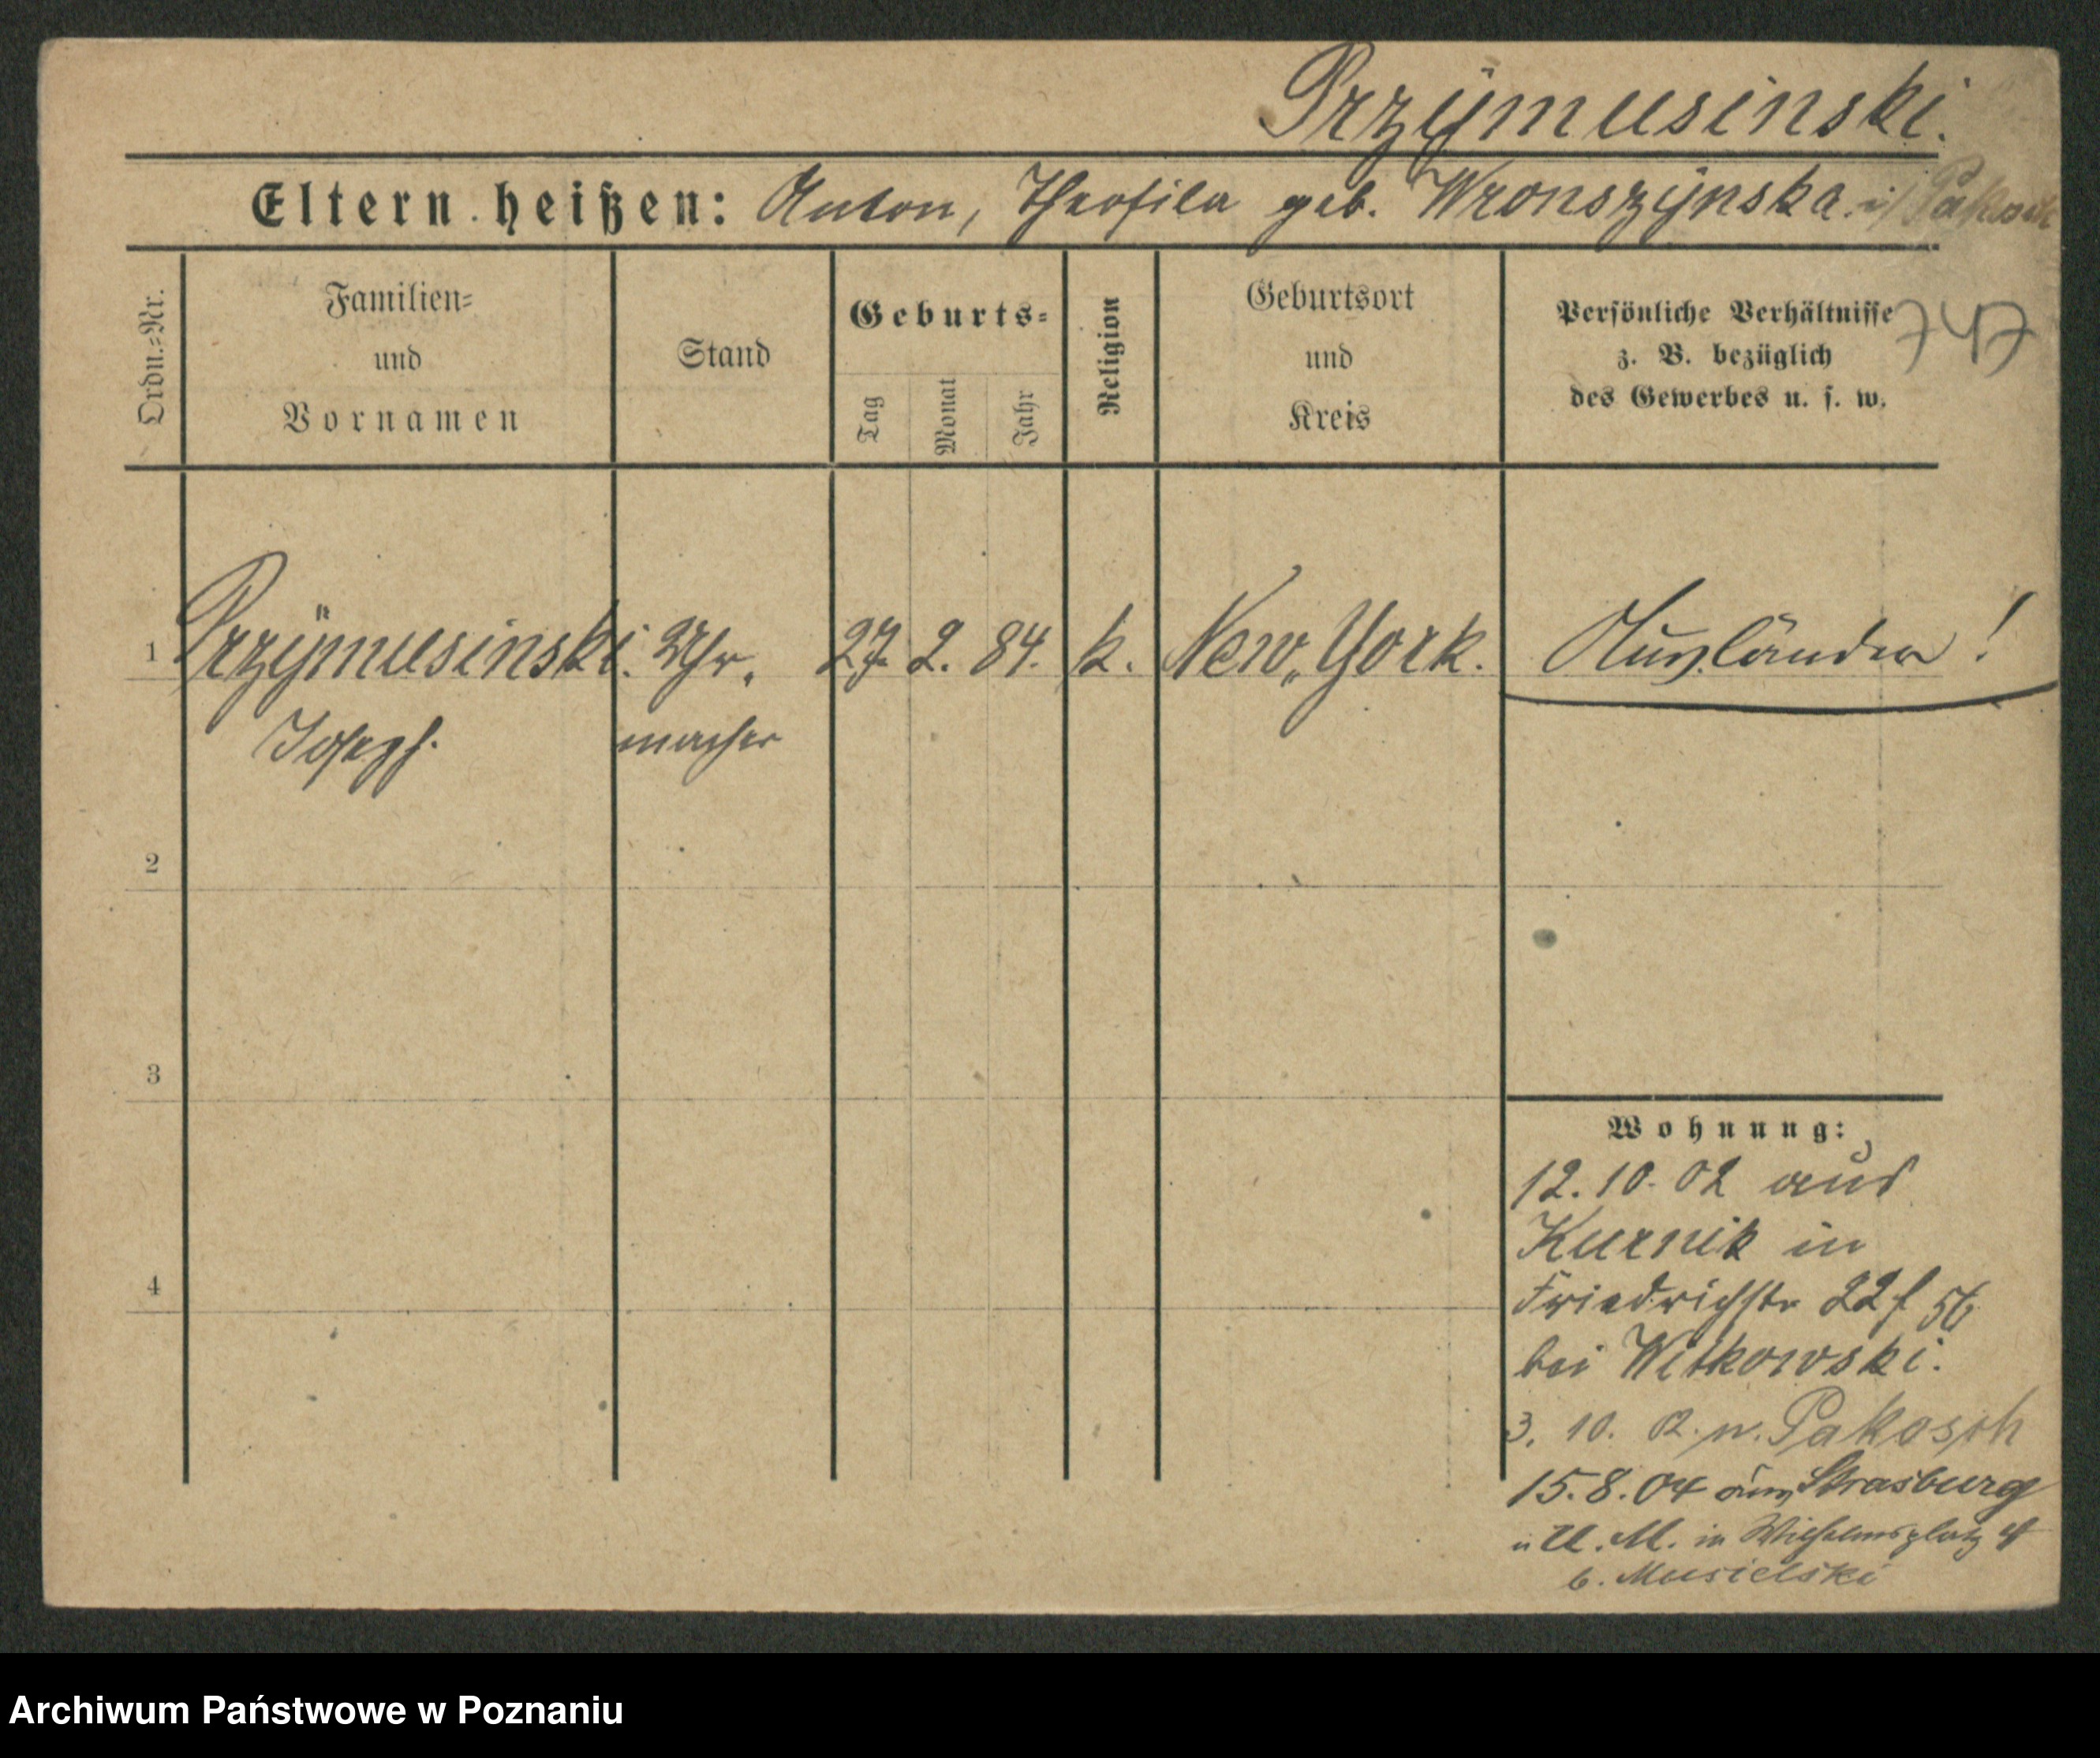 Przÿmusinski.
Eltern heißen: Anton, Theofila geb. Wronszÿnska. i/ Pakosch
Ordn.=Nr.
Familien=
und
Vornamen
Stand
Geburts=
Tag
Monat
Jahr
Religion
Geburtsort
und
Kreis
Persönliche Verhältnisse
z. B. bezüglich
des Gewerbes u. s. w.
747
1 Przÿmusinski. Uhr. 27. 2. 84. k. New„York. Ausländer!
Joseph. macher
2
3
4
Wohnung:
12.10.02 aus
Kurnik in
Friedrichstr 22 56
bei Witkowski.
3. 10. n. Pakosch
15.8.04 aus Strasburg
i U. M. in Wilhelmsplatz 4
b. Musielski
Archiwum Państwowe w Poznaniu